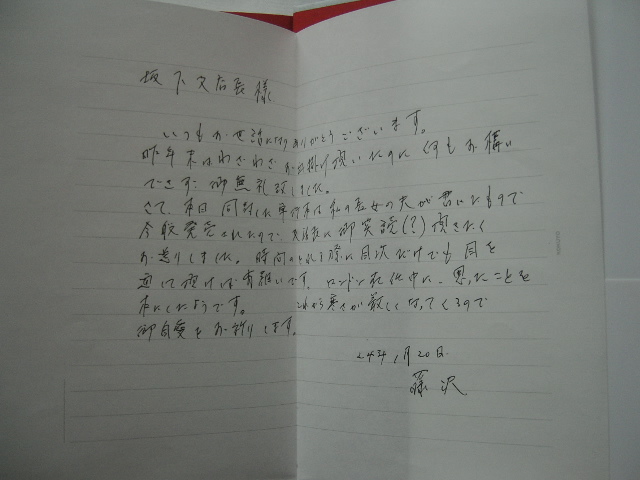 坂下文店長様
いつもお世話になりありがとうございます。
昨年末はわざわざお出掛け頂いたのに何もお構い
できず御無礼致しました。
さて、本日同封した単行本は私の長女の夫が書いたもので
今般発売されたので、店長に御笑読(?)頂きたく
お送りしました。時間のとれる際に目次だけでも目を
通して頂ければ有難いです。ロンドン在住中に、思ったことを
本にしたようです。これから寒さが厳しくなってくるので
御自愛をお祈りします。
24年1月20日
藤沢